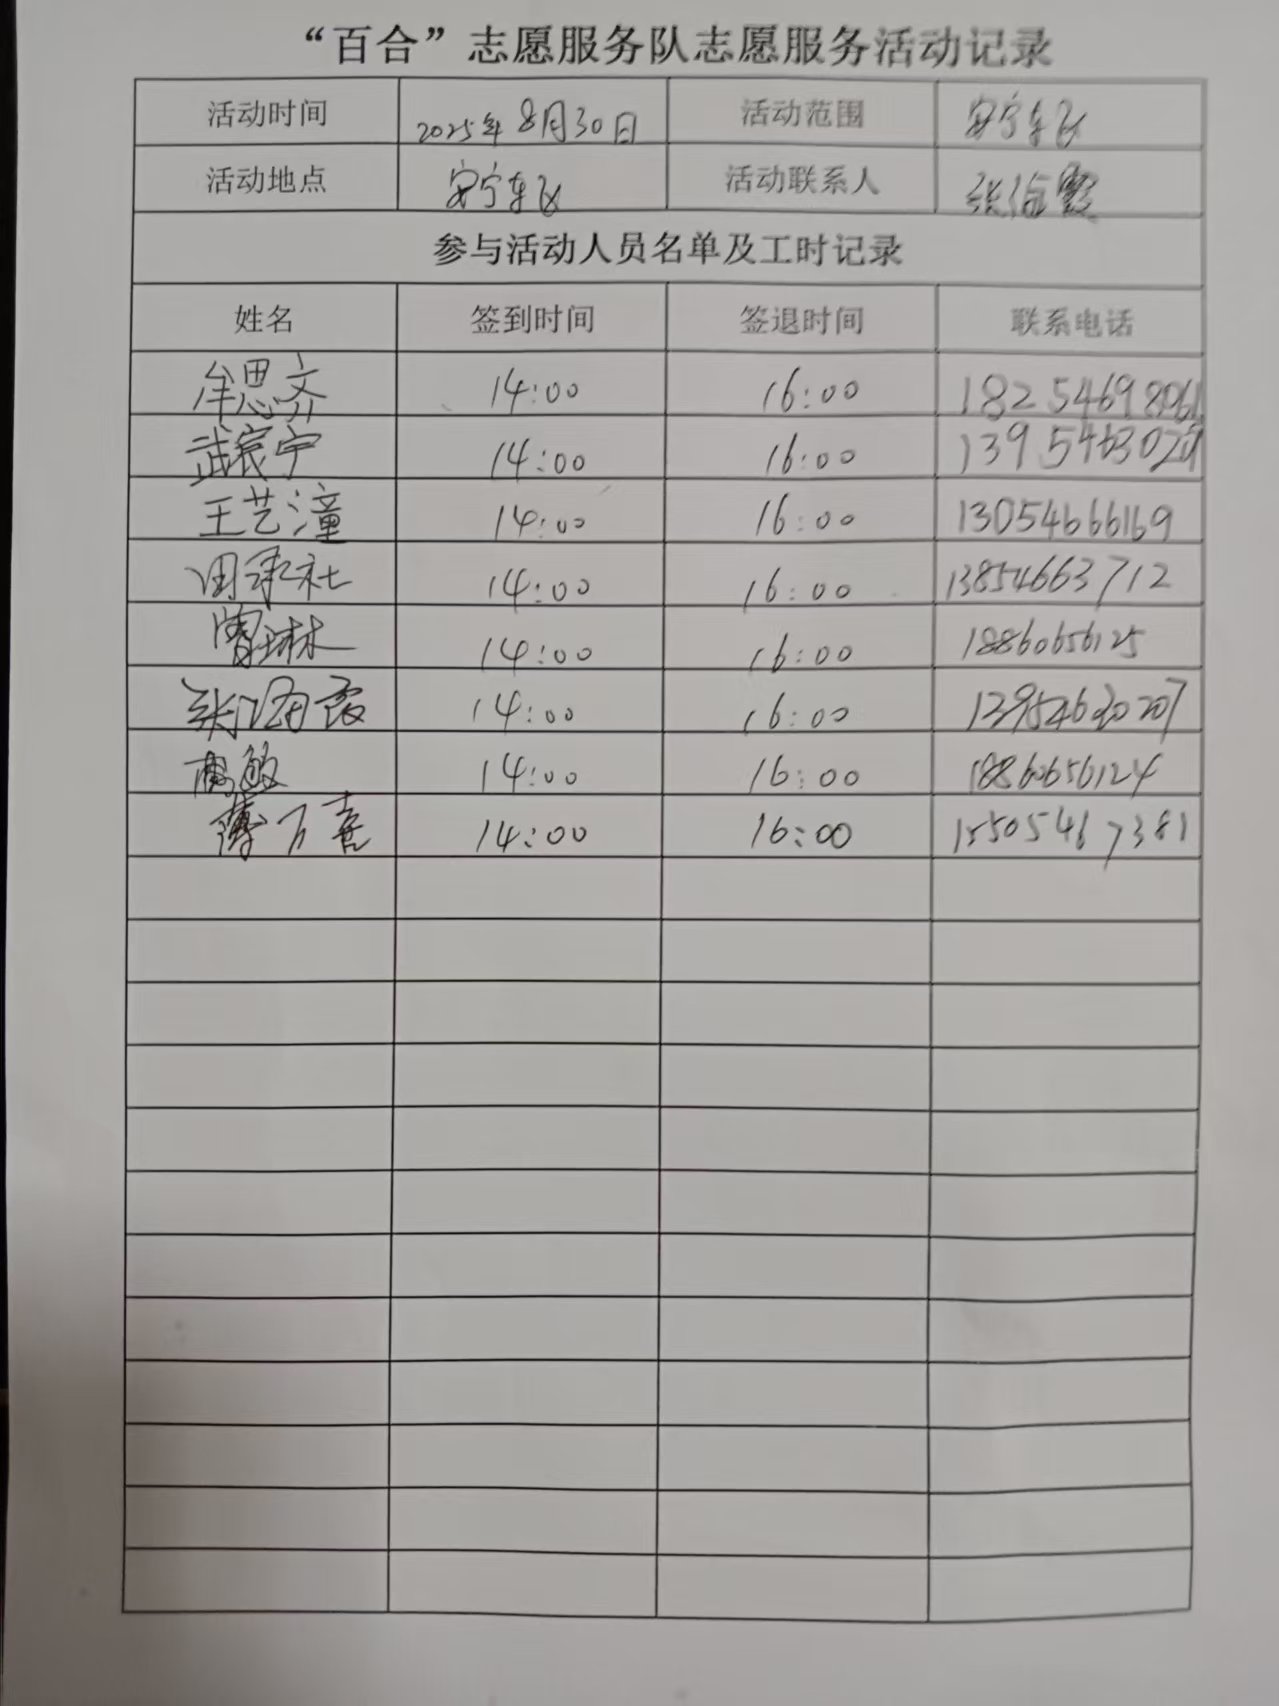 “百合”志愿服务队志愿服务活动记录
活动时间 2025年8月30日 活动范围 安宁东区
活动地点 安宁东区 活动联系人 张
参与活动人员名单及工时记录
姓名 签到时间 签退时间 联系电话
牟思齐 14:00 16:00 18254698961
武宸宁 14:00 16:00
王艺潼 14:00 16:00 13054666169
田承社 14:00 16:00 13854663712
曹琳 14:00 16:00 18860656125
张 霞 14:00 16:00
高敏 14:00 16:00 18860656124
薄万喜 14:00 16:00 15505467381